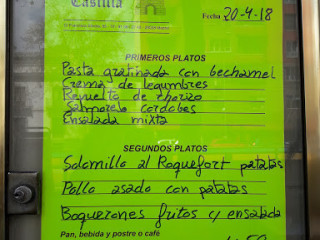 Castilla
Fecha 20-4-18
PRIMEROS PLATOS
Pasta gratinada con bechamel
Crema de legumbres
Revuelto de chorizo
Salmorejo cordobes
Ensalada mixta
SEGUNDOS PLATOS
Solomillo al Roquefort patatas
Pollo asado con patatas
Boquerones fritos y ensalada
Pan, bebida y postre o café